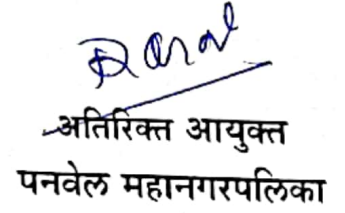 अतिरिक्त आयुक्त
पनवेल महानगरपलिका